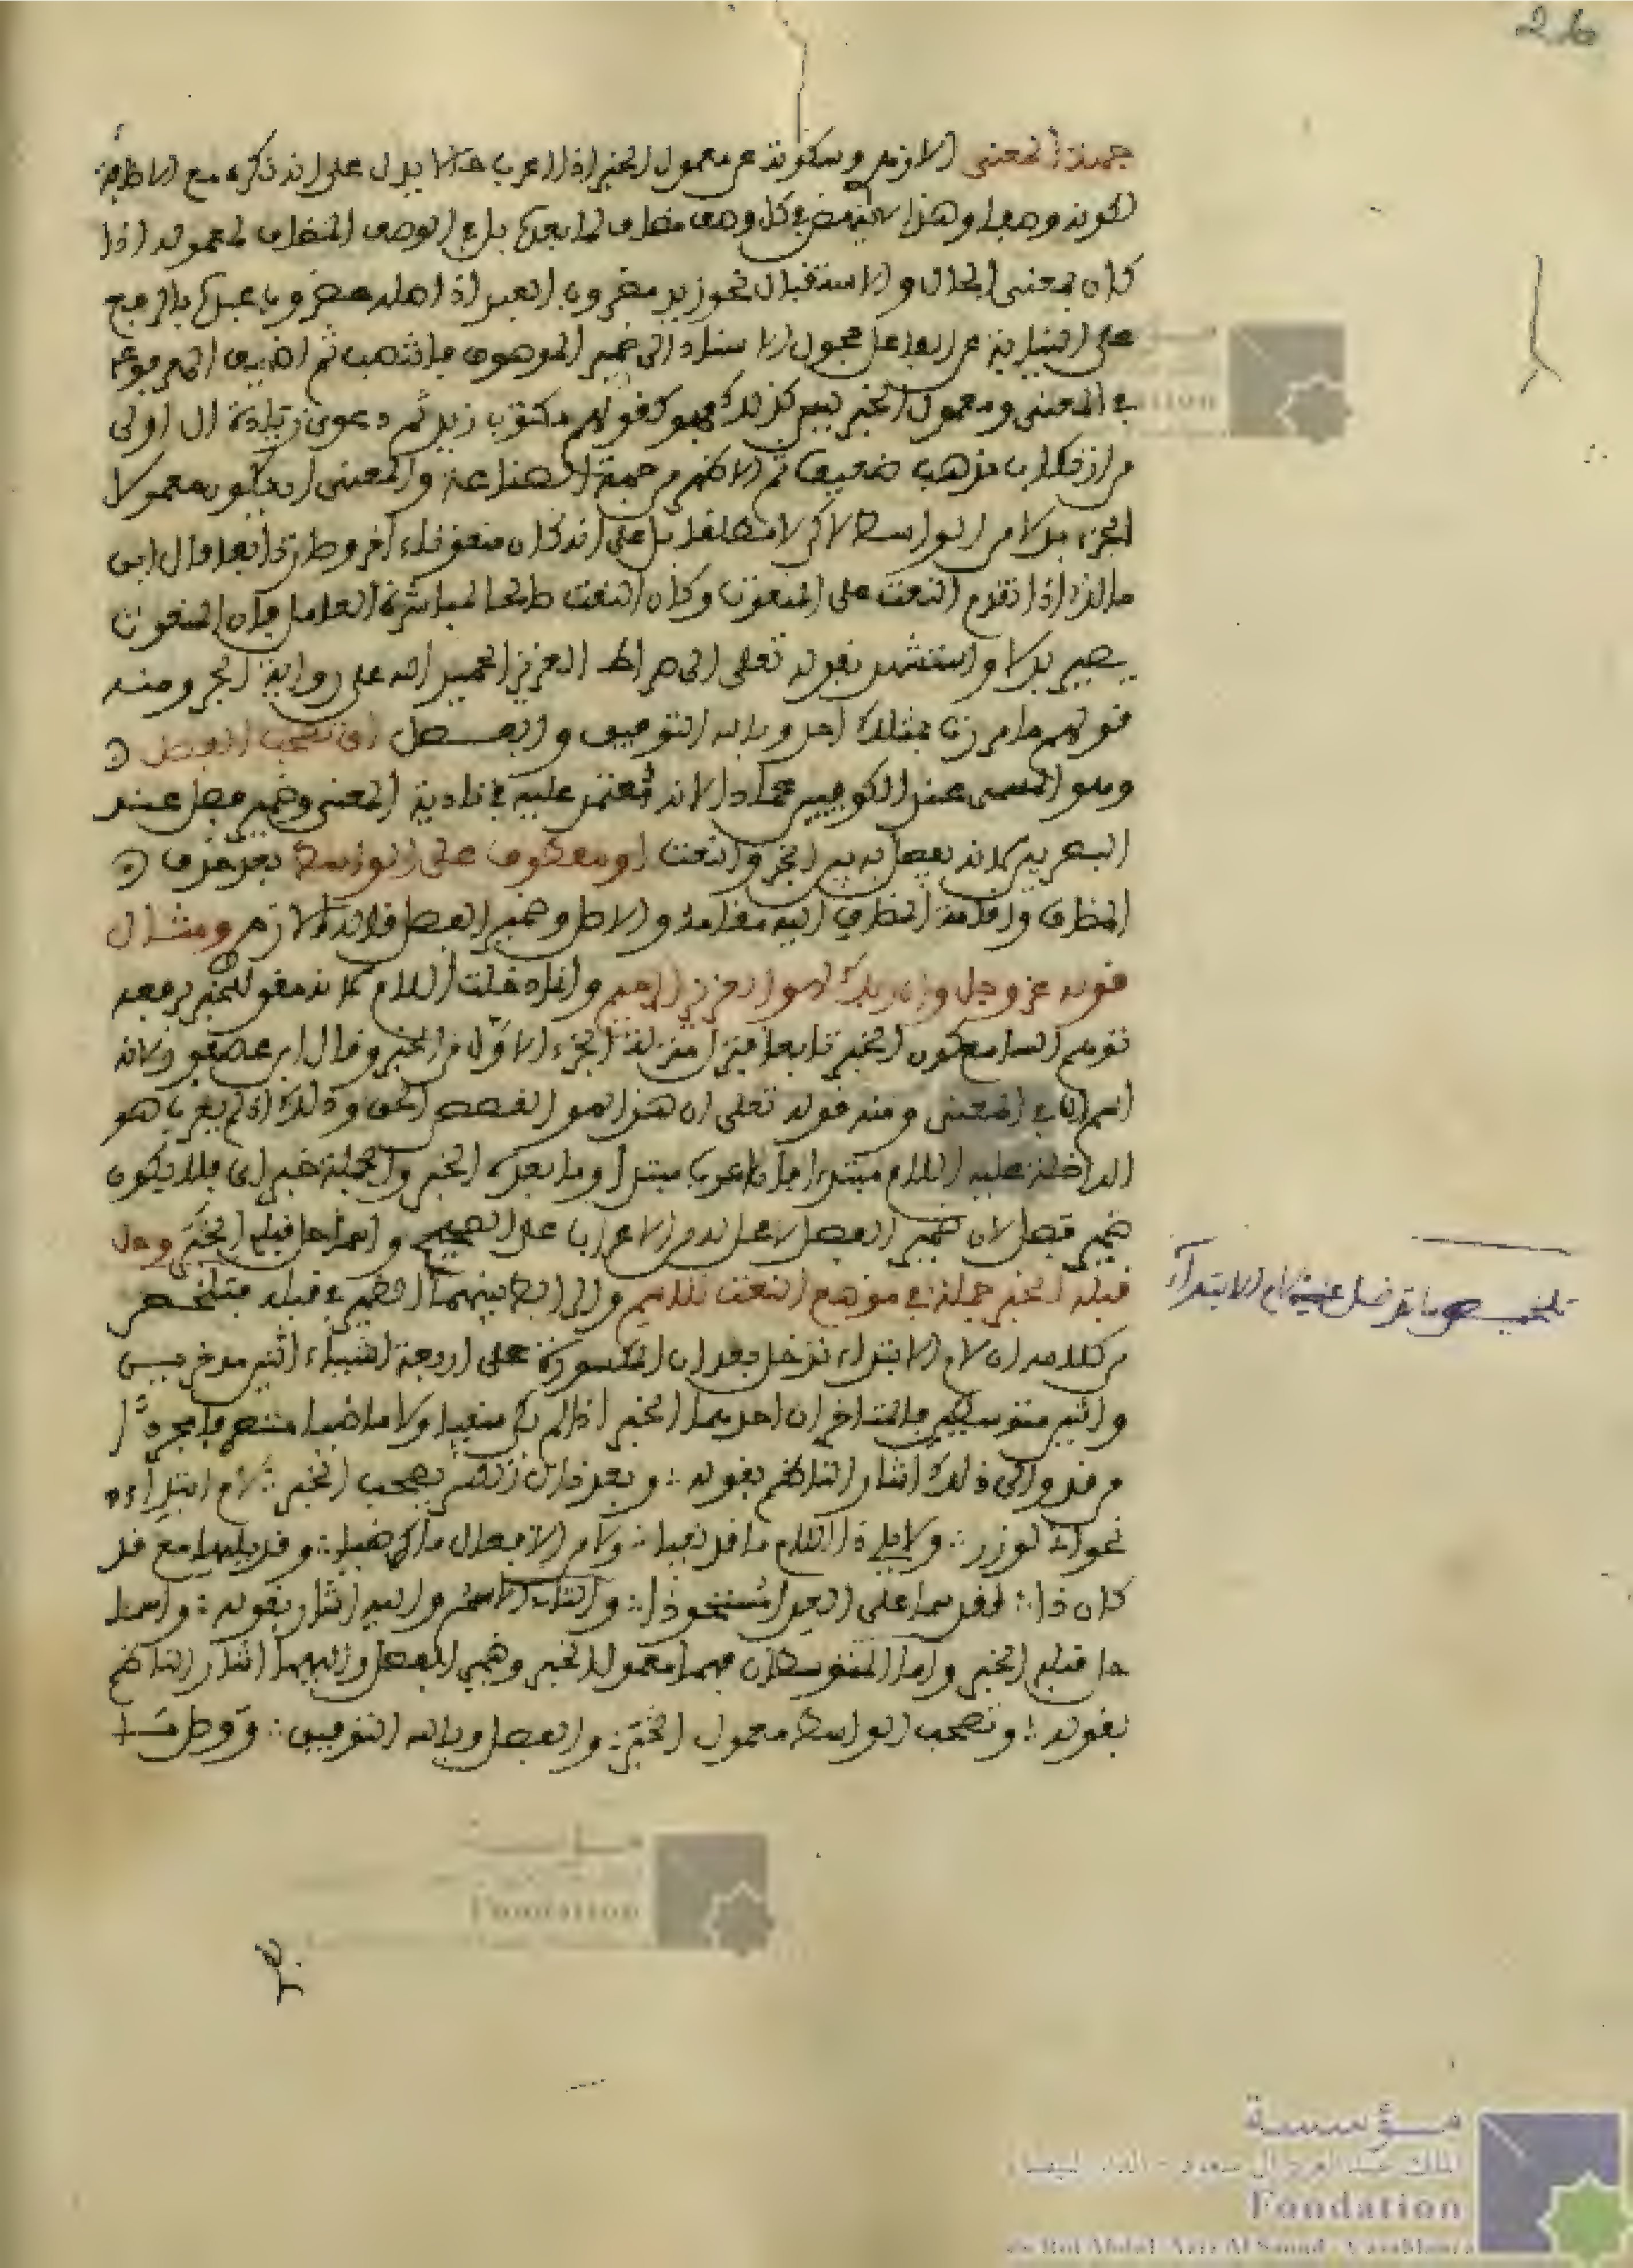 26
جهة المعنى اللازم وسكوته عن معمول الخبر اذا اعرب حالا يدل على انه ذكره مع الاضافة
لكونه وصفا وهذا ليس في كل وصف مضاف لما بعده بل في الوصف المضاف لمعموله اذا
كان بمعنى الحال والاستقبال نحو زيد مضروب العبد اذ اصله مضروب عبده بالرفع
على النيابة عن الفاعل فحول الاسناد الى ضمير الموصوف فانتصب ثم اضيف الى مرفوعه
في المعنى ومعمول الخبر ليس كذلك فهو كقولهم مكتوب زيد ثم دعوى زيادة ال اولى
من ارتكاب مذهب ضعيف ثم الاظهر من جهة الصناعة والمعنى ان يكون معمول
الخبر بدلا من الواسط لاكن لا مطلقا بل على انه كان منعوتا اخر وصار تابعا قال ابن
مالك اذا تقدم النعت على المنعوت وكان النعت صالحا لمباشرة العامل فان المنعوت
يصير بدلا واستشهد بقوله تعلى الى صراط العزيز الحميد الله على رواية الجر ومنه
قولهم ما مررت بمثلك احد وبالله التوفيق والفصل اي تصحب الفصل
وهو المسمى عند الكوفيين عمادا لانه يعتمد عليه في تادية المعنى وضمير فصل عند
البصريين لانه يفصل به بين الخبر والنعت او معطوف على الواسط بعد حذف
المضاف واقامة المضاف اليه مقامه والاصل وضمير الفصل قاله الازهر ومثال
قوله عز وجل وان ربك لهو العزيز الرحيم وانما دخلت اللام لانه مقو للخبر لرفعه
توهم السامع كون الخبر تابعا فنزل منزلة الجزء الاول من الخبر وقال ابن عصفور لانه
اسم ان في المعنى ومنه قوله تعلى ان هذا لهو القصص الحق وذلك اذا لم يعرب هو
الداخلة عليه اللام مبتدا فان اعرب مبتدا وما بعده الخبر والجملة خبر ان فلا يكون
ضمير فصل لان ضمير الفصل لا محل له من الاعراب على الصحيح واسما حل قبله الخبر وحل
قبله الخبر جملة في موضع النعت للاسم والرابط بينهما الضمير في قبله فتلخص
من كلامه ان لام الابتداء تدخل بعد ان المكسورة على اربعة اشياء اثنين مؤخرين
واثنين متوسطين فالمتاخران احدهما الخبر اذا لم يكن منفيا ولا ماضيا متصرفا مجردا
من قد والى ذلك اشار الناظم بقوله وبعد ذات الكسر تصحب الخبر لام ابتداء
نحو اني لوزر ولا يلي ذي اللام ما قد نفيا ولا من الافعال ما كرضيا وقد يليها مع قد
كان ذا لقد سما على العدا مستحوذا والثاني الاسم واليه اشار بقوله واسما
حل قبله الخبر واما المتوسطان فهما معمول الخبر وضمير الفصل واليهما اشار الناظم
بقوله وتصحب الواسط معمول الخبر والفصل وبالله التوفيق ووصل ما
تلخيص ما تدخل عليه لام الابتداء
Fondation
مؤسسة
الملك عبد العزيز آل سعود - الدار البيضاء
Fondation
du Roi Abdul Aziz Al Saoud - Casablanca